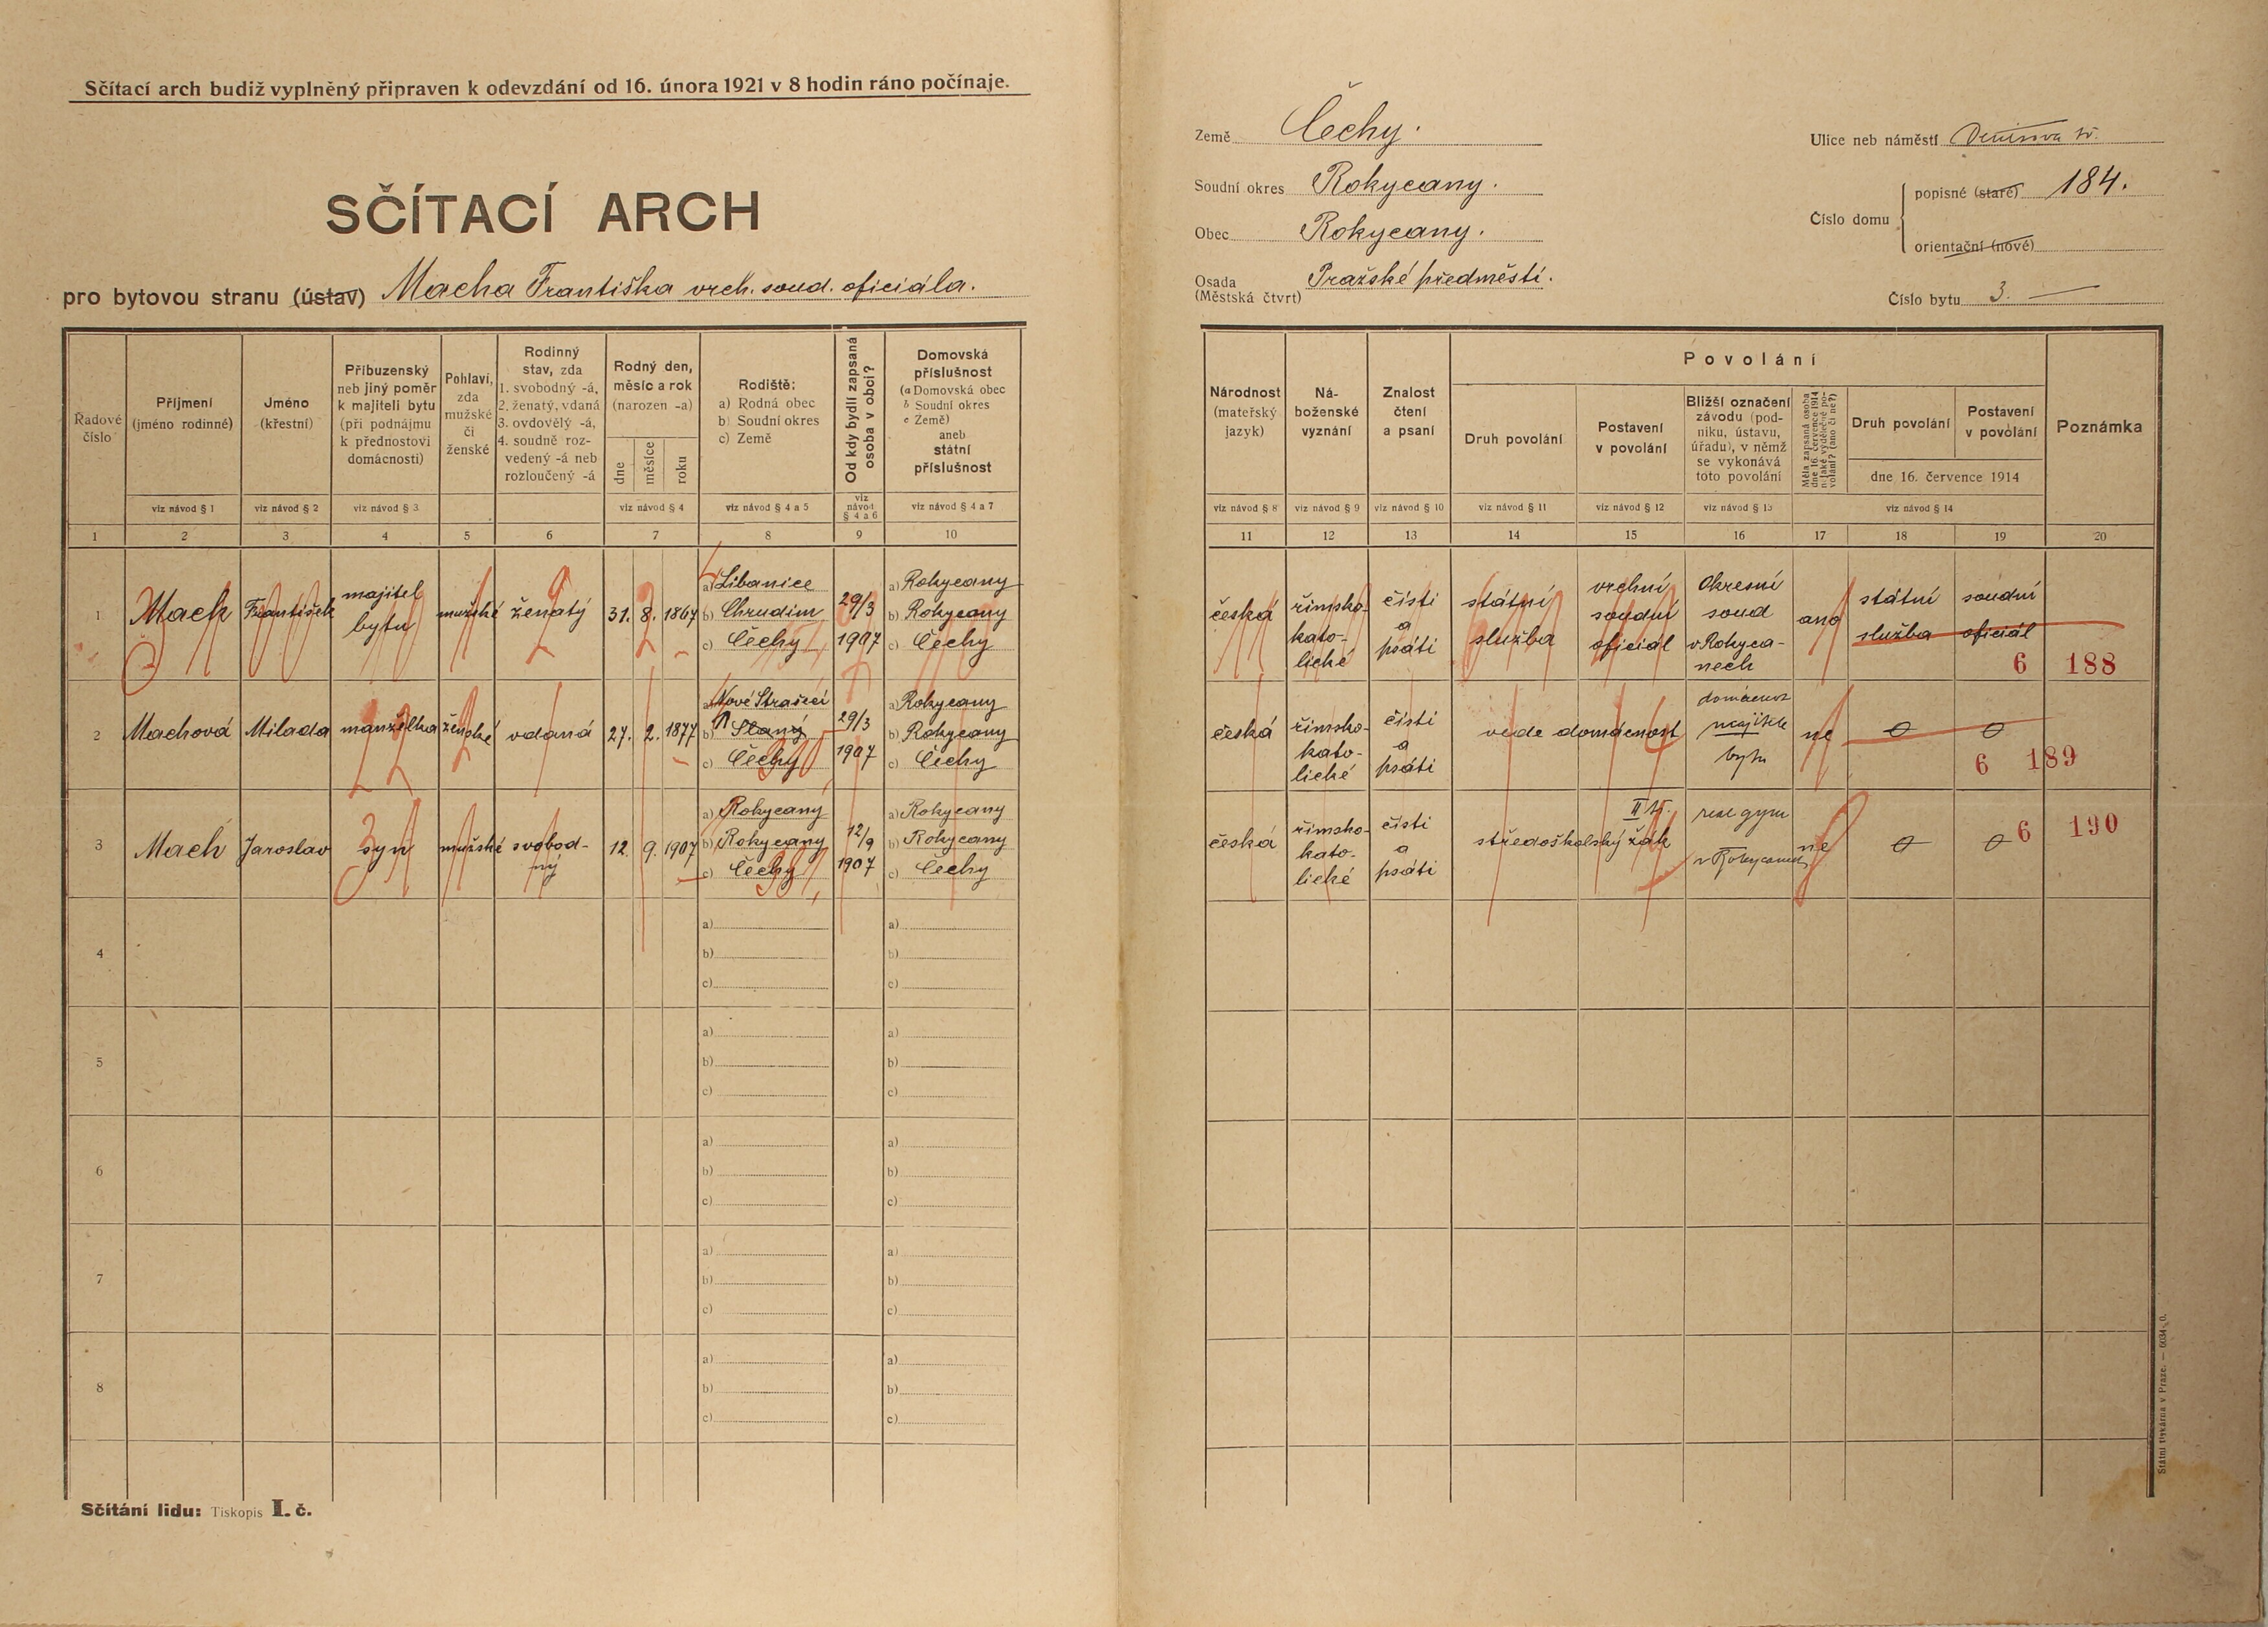 Sčítací arch budiž vyplněný připraven k odevzdání od 16. února 1921 v 8 hodin ráno počínaje.
SČÍTACÍ ARCH
pro bytovou stranu (ústav) Macha Františka vrch. soud. oficiála.
Země Čechy.
Soudní okres Rokycany.
Obec Rokycany.
Osada
(Městská čtvrt) Pražské předměstí.
Ulice neb náměstí Denisova tř.
Číslo domu
popisné (staré) 184.
orientační (nové)
Číslo bytu 3.
Řadové
číslo
Příjmení
(jméno rodinné)
Jméno
(křestní)
Příbuzenský
neb jiný poměr
k majiteli bytu
(při podnájmu
k přednostovi
domácnosti)
Pohlaví,
zda
mužské
či
ženské
Rodinný
stav, zda
1. svobodný -á,
2. ženatý, vdaná
3. ovdovělý -á,
4. soudně roz-
vedený -á neb
rozloučený -á
Rodný den,
měsíc a rok
(narozen -a)
dne
měsíce
roku
Rodiště:
a) Rodná obec
b) Soudní okres
c) Země
Od kdy bydlí zapsaná
osoba v obci?
Domovská
příslušnost
(a Domovská obec
b Soudní okres
c Země)
aneb
státní
příslušnost
viz návod § 1
viz návod § 2
viz návod § 3
viz návod § 4
viz návod § 4 a 5
viz
návod
§ 4 a 6
viz návod § 4 a 7
1 2 3 4 5 6 7 8 9 10
Národnost
(mateřský
jazyk)
Ná-
boženské
vyznání
Znalost
čtení
a psaní
Povolání
Druh povolání
Postavení
v povolání
Bližší označení
závodu (pod-
niku, ústavu,
úřadu), v němž
se vykonává
toto povolání
Měla zapsaná osoba
dne 16. července 1914
n. jaké výdělečné po-
volání? (ano či ne?)
Druh povolání
Postavení
v povolání
dne 16. července 1914
Poznámka
viz návod § 8
viz návod § 9
viz návod § 10
viz návod § 11
viz návod § 12
viz návod § 13
viz návod § 14
11 12 13 14 15 16 17 18 19 20
1 Mach František
majitel
bytu
mužské ženatý 31. 8. 1867
a) Libanice
b) Chrudim
c) Čechy
29/3
1907
a) Rokycany
b) Rokycany
c) Čechy
česká
římsko-
kato-
lické
čísti
a
psáti
státní
služba
vrchní
soudní
oficiál
Okresní
soud
v Rokyca-
nech
ano
státní
služba
soudní
oficiál
6 188
2 Machová Milada manželka ženské vdaná 27. 2. 1877
a) Nové Strašecí
b) Slaný
c) Čechy
29/3
1907
a) Rokycany
b) Rokycany
c) Čechy
česká
římsko-
kato-
lické
čísti
a
psáti
vede domácnost
majitele
bytu
ne
0 0
6 189
3 Mach Jaroslav syn mužské
svobod-
ný
12. 9. 1907
a) Rokycany
b) Rokycany
c) Čechy
12/9
1907
a) Rokycany
b) Rokycany
c) Čechy
česká
římsko-
kato-
lické
čísti
a
psáti
středoškolský žák
II tř.
real gym
v Rokycanech
ne
0 0
6 190
4
a) a)
b) b)
c) c)
5
a) a)
b) b)
c) c)
6
a) a)
b) b)
c) c)
7
a) a)
b) b)
c) c)
8
a) a)
b) b)
c) c)
Sčítání lidu: Tiskopis I. č.
Státní tiskárna v Praze.